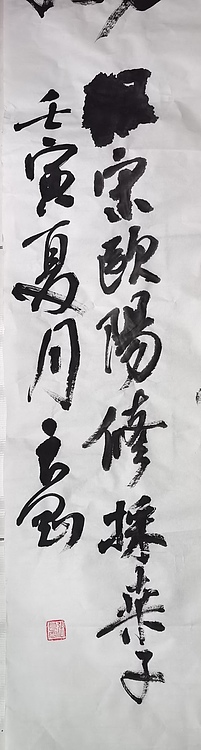 宋歐陽修採桑子
壬寅夏月